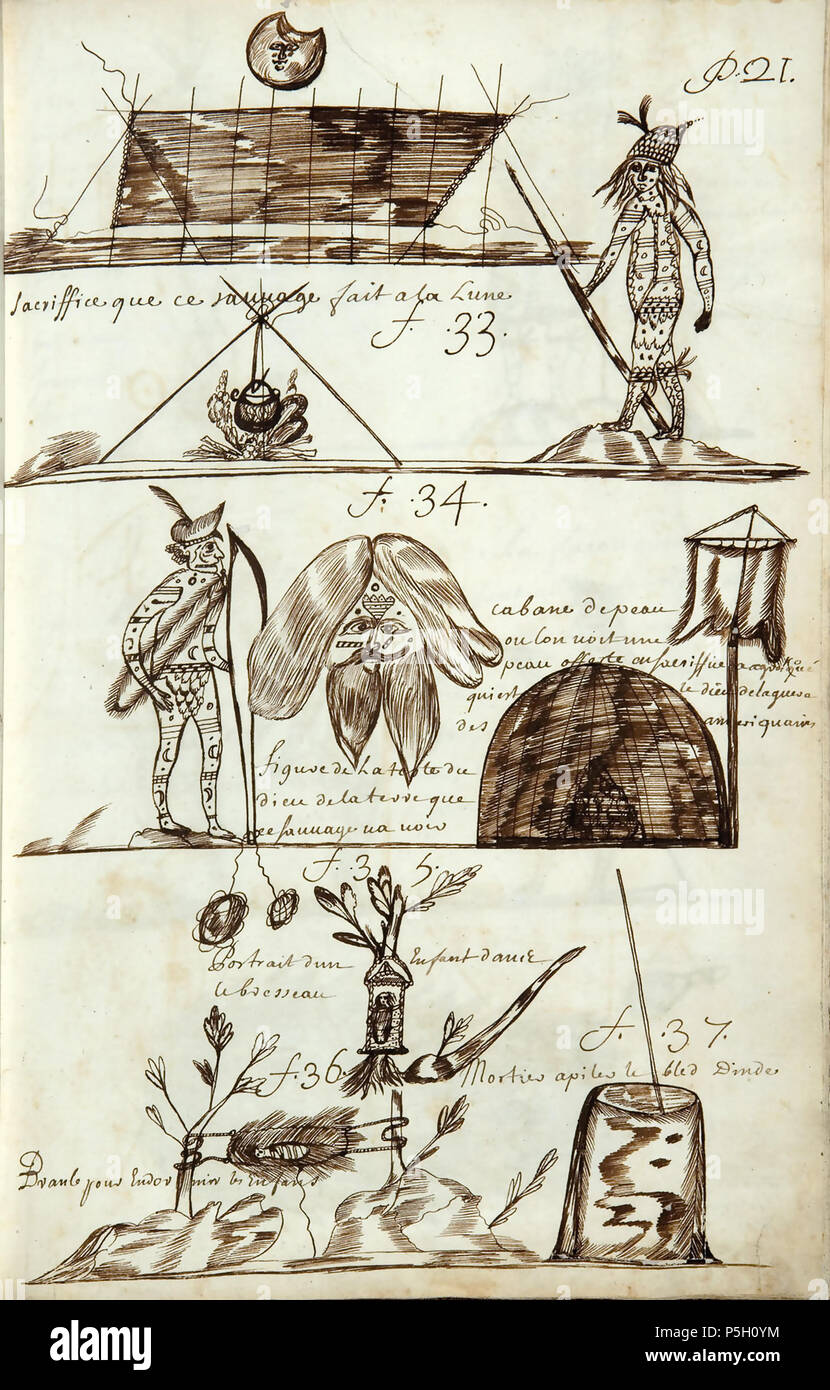 P. 21.
Sacriffice que ce sauuage fait a la Lune
f. 33.
f. 34.
cabane de peau
ou lon uoit une
peau offerte en sacriffice a
qui est le dieu de la guera
des ameriquains
figure de La teste du
dieu de la terre que
ce sauuage ua uoir
f. 35.
Portrait dun Enfant dans
le bresseau
f. 36.
f. 37.
Mortier a piler le bled Dinde
Branle pour Endormir les Enfans
alamy
Image ID: P5H0YM
www.alamy.com